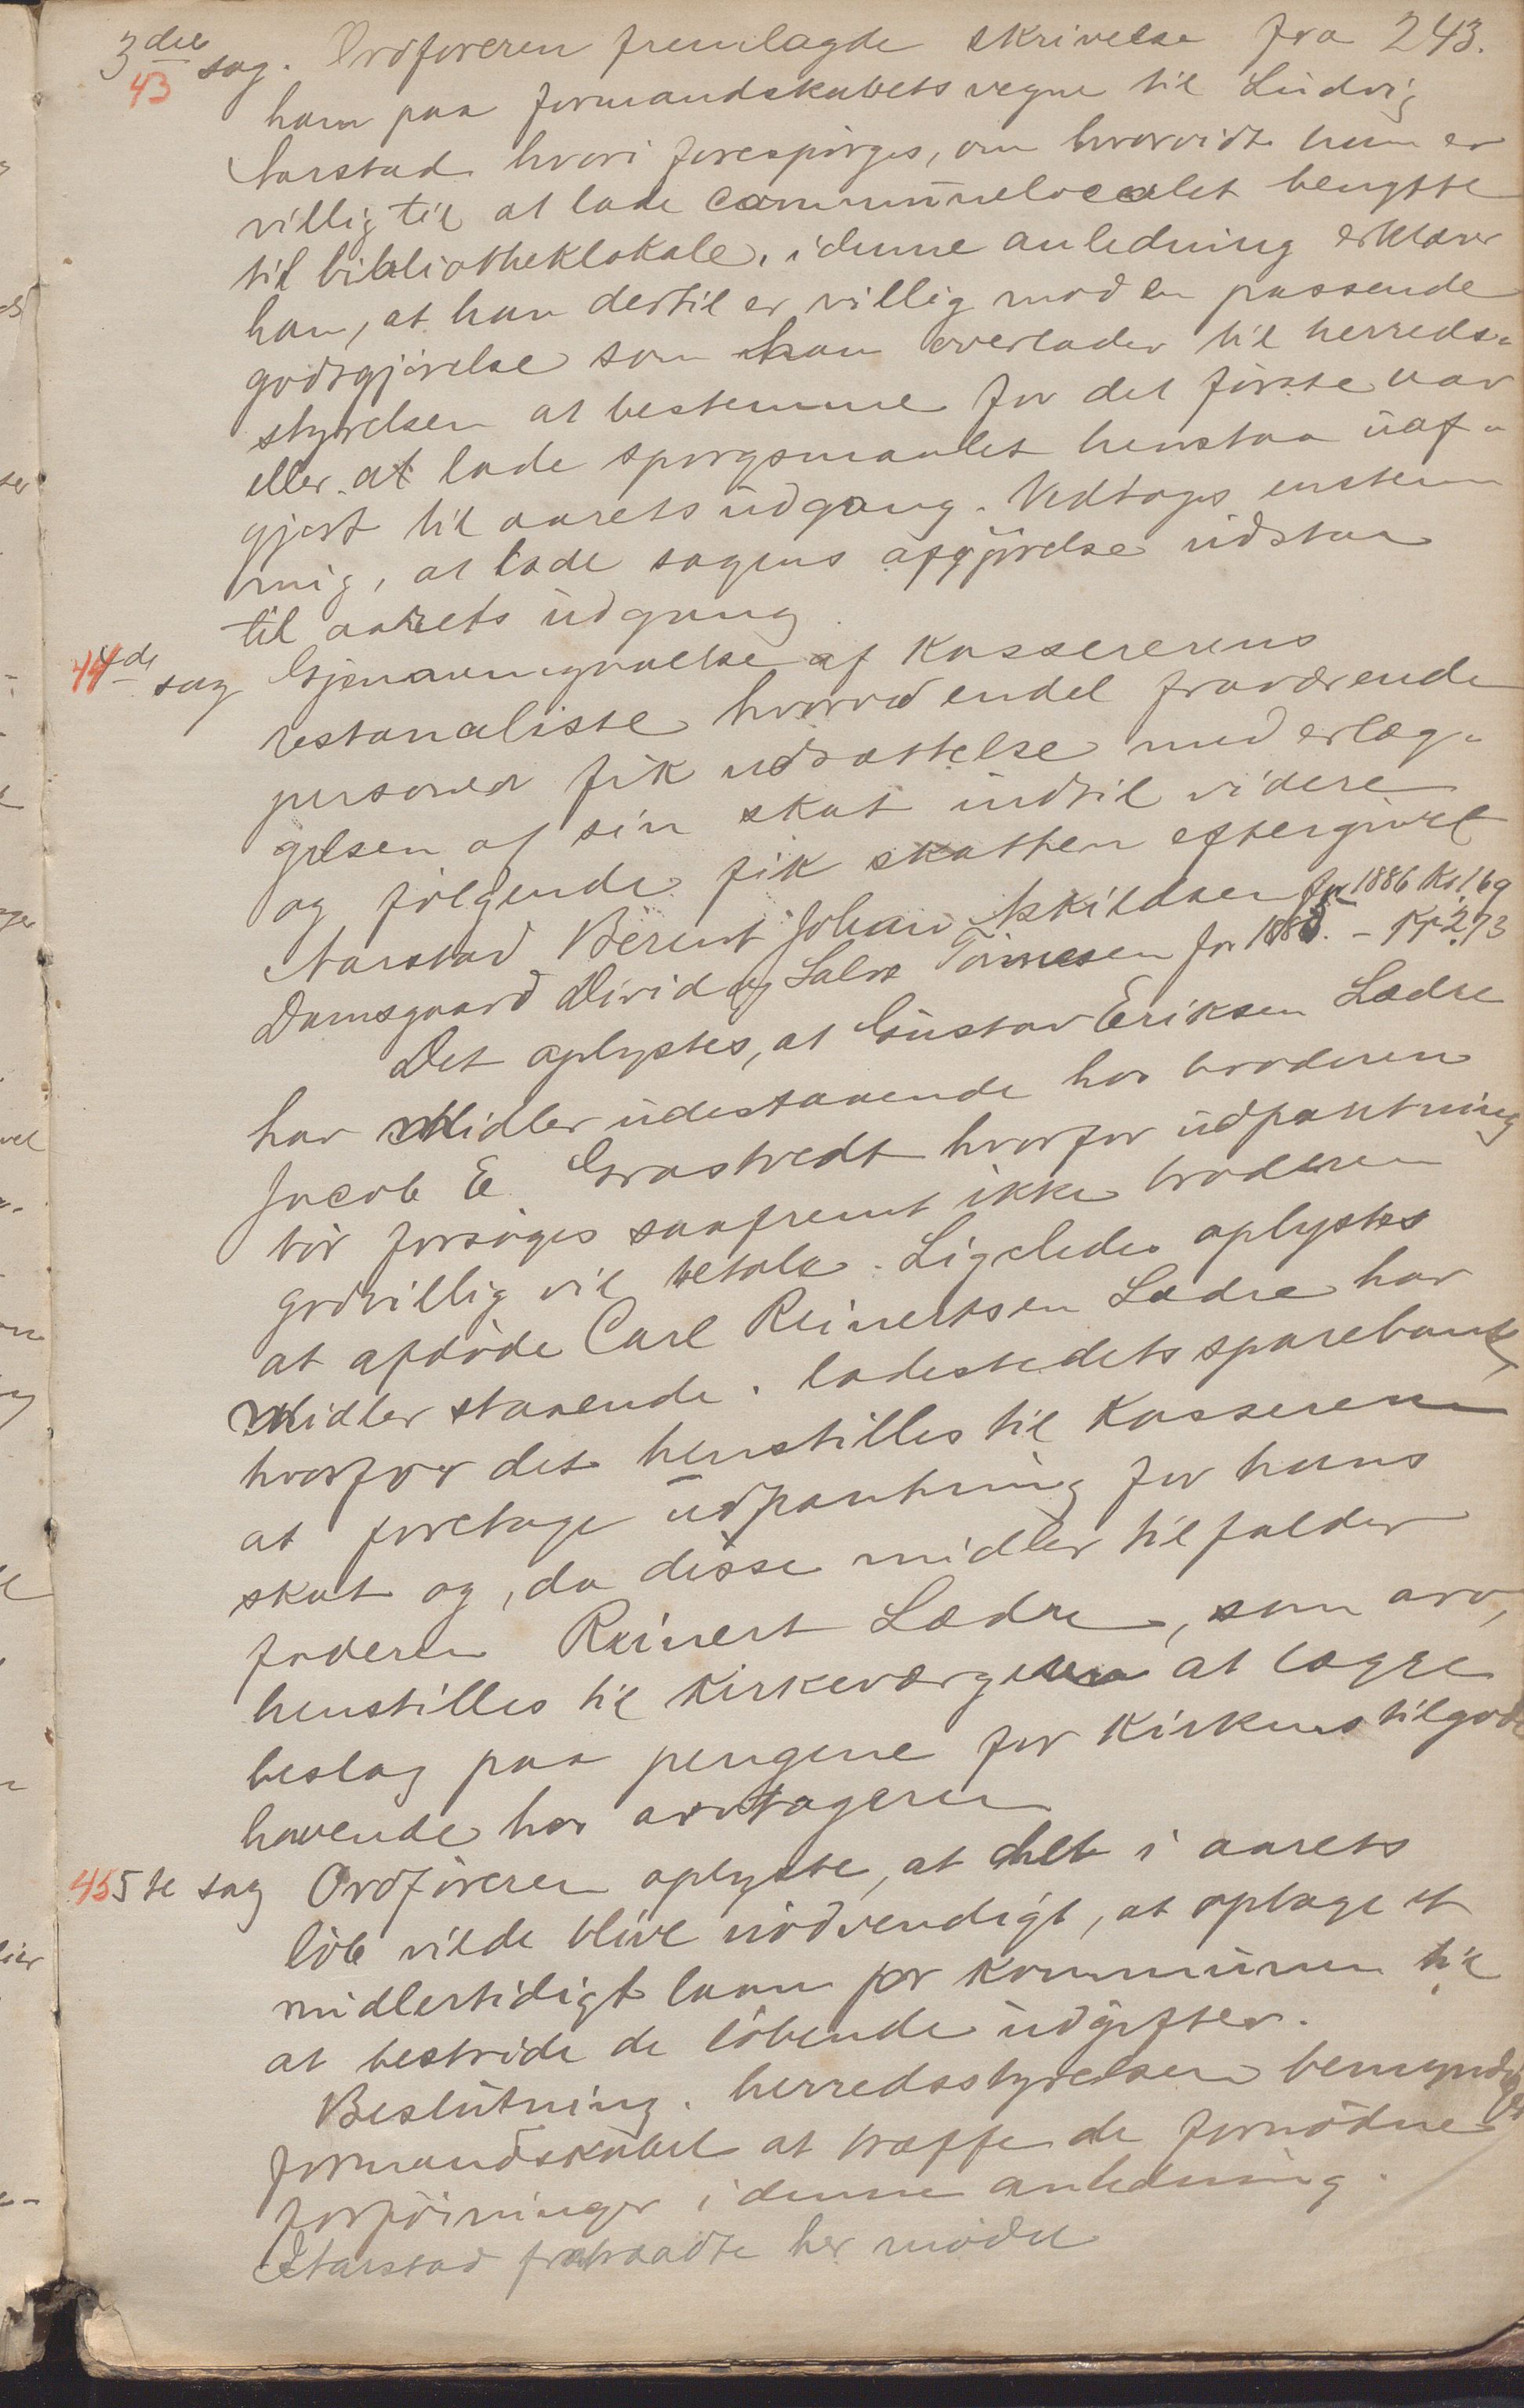 3die sag. Ordføreren fremlagde skrivelse fra 243.
43
ham paa formandskabets vegne til Ludvig
Aarstad hvori forespørges, om hvorvidt han er
villig til at lade communelocalet benytte
til bibliotheklokale, i denne anledning erklærer
han, at han dertil er villig mod en passende
godtgjørelse som han overlader til herreds-
styrelsen at bestemme for det første aar
eller at lade spørgsmaalet henstaa uaf-
gjort til aarets udgang. Vedtoges enstem
mig, at lade sagens afgjørelse udstaa
til aarets udgang.
44 4de sag Gjennemgaaelse af Kassererens
restanseliste hvorved endel fraværende
personer fik udsættelse med erlæg-
gelsen af sin skat indtil videre
og følgende fik skatten eftergivet
Aarstad Berent Johan Askildsen for 1886 Kr 1 69
Damsgaard Divid og Salve Tønnesen for 188 - Kr 2,73
Det oplystes, at Gustav Eriksen Lædre
har Midler udestaaende hos broderen
Jacob E Grastvedt hvorfor udpantning
bør forsøges saafremt ikke broderen
godvillig vil betale. Ligeledes oplystes
at afdøde Carl Reinertsen Lædre har
Midler staaende i ladestedets sparebank,
hvorfor det henstilles til Kassereren
at foretage udpantning for hans
skat og, da disse midler tilfalder
faderen Reinert Lædre, som arv,
henstilles til Kirkeværgeren at lægge
beslag paa pengene for Kirkens tilgode
havende hos arvtageren
45 5te sag Ordføreren oplyste, at det i aarets
løb vilde blive nødvendigt, at optage et
midlertidigt laan for Kommunen til
at bestride de løbende udgifter.
Beslutning. herredsstyrelsen bemyndiger
formandskabet at træffe de fornødne
forføininger i denne anledning.
Aarstad fratraadte her mødet